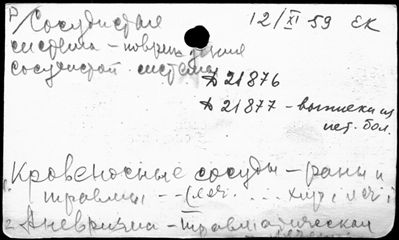 Р/Сосудистая 12/XI 59 ЕК
система – повреждения
сосудистой системы
Д 21876
Д 21877 – выписки из
ист. бол.
1. Кровеносные сосуды – раны и
травмы – – (леч. ... хир. леч.
2. Аневризма – травматическая